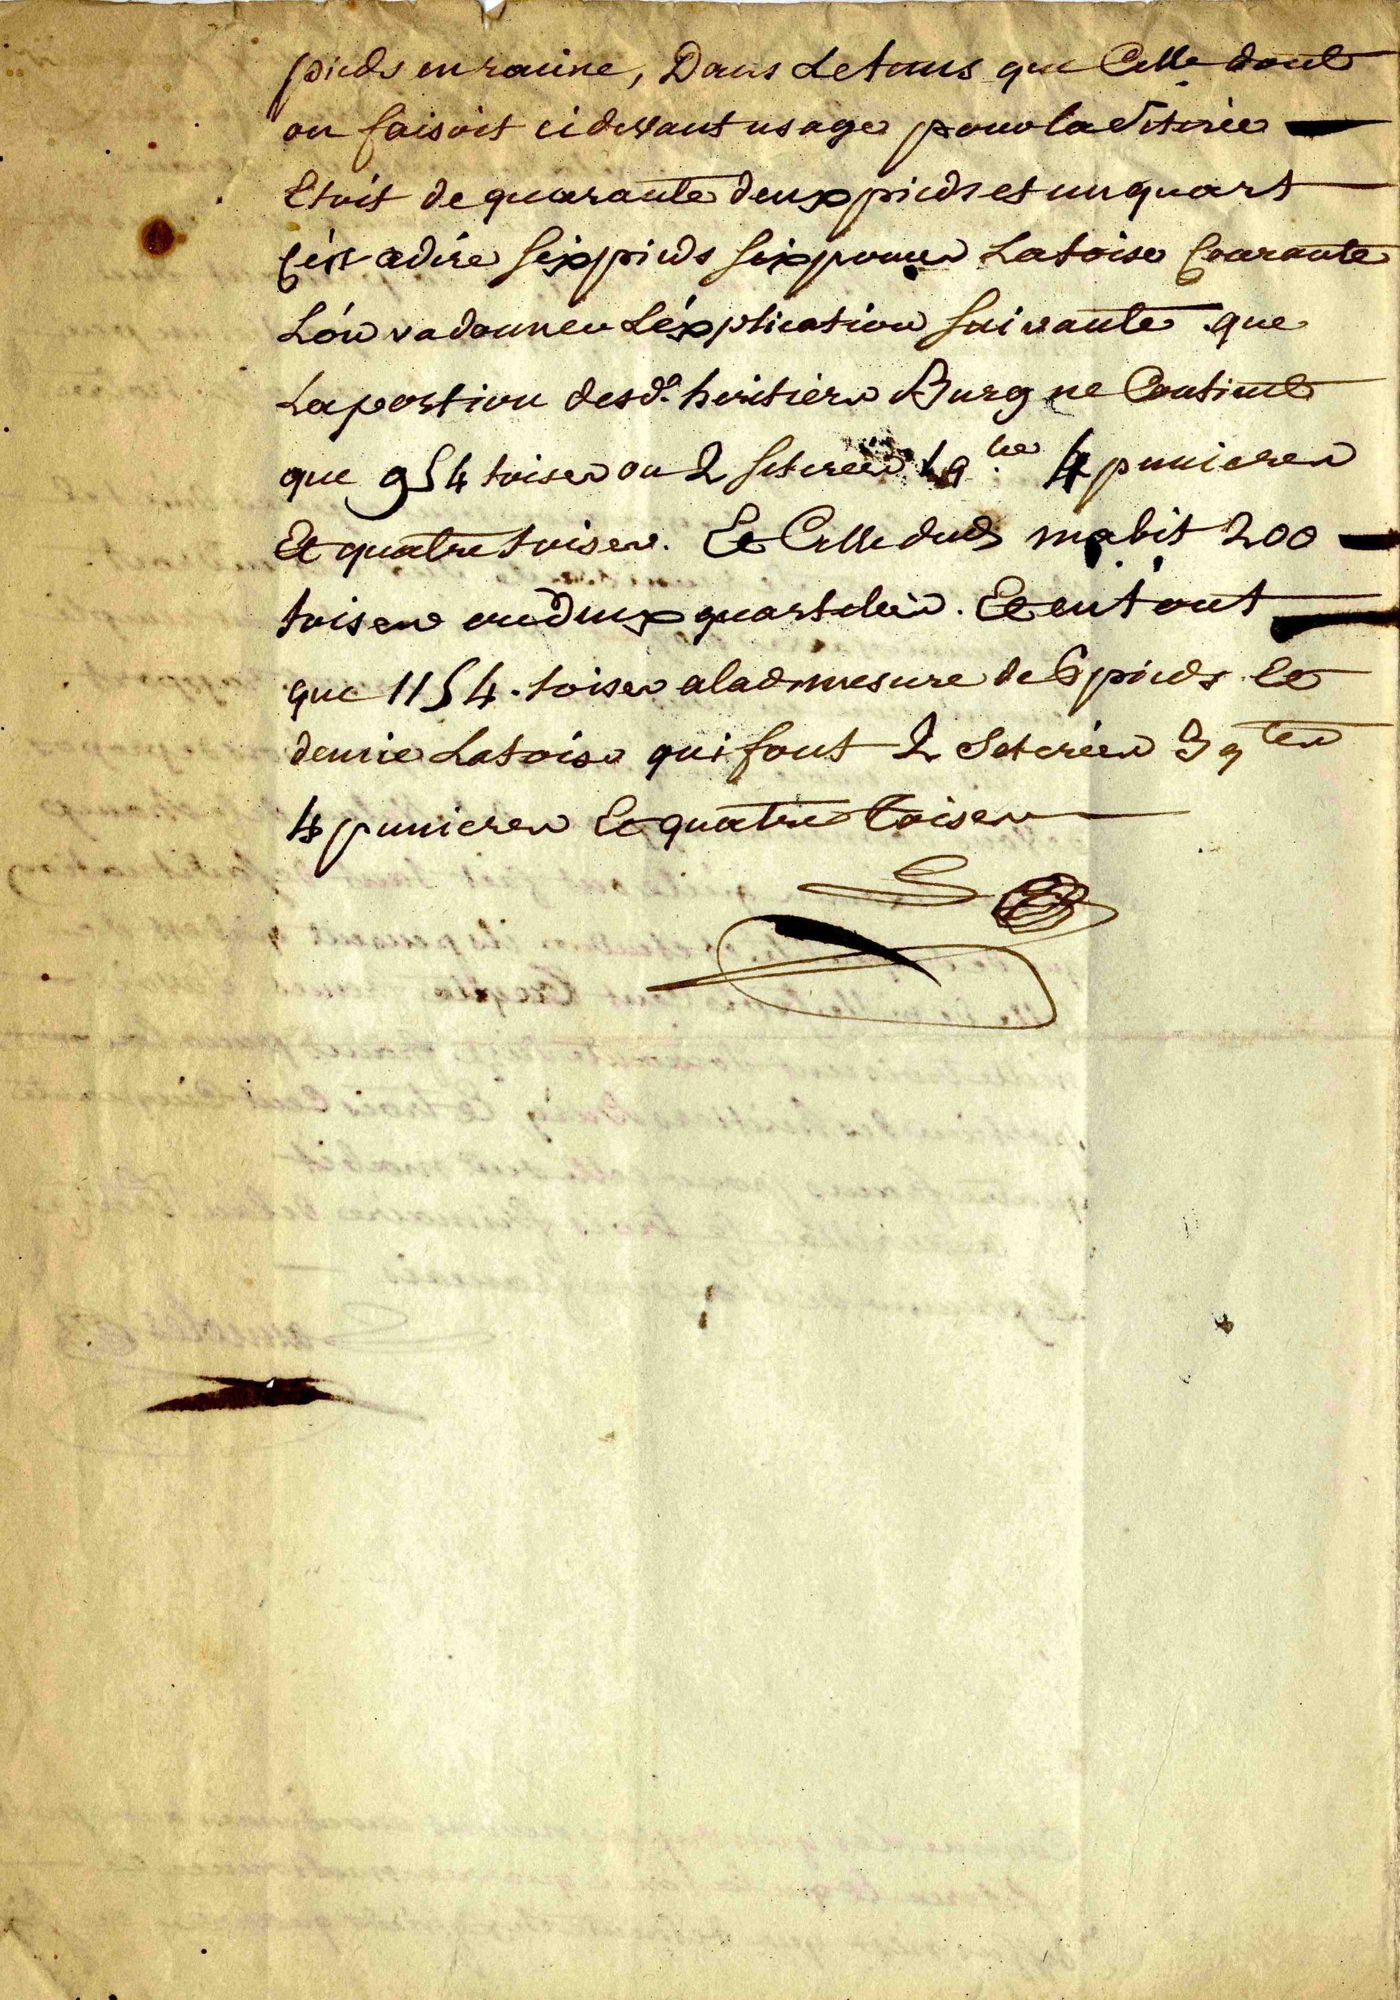 pieds en racine, Dans Letems que Celle dont
on faisoit ci devant usage pour ladt Seterée
Etoit de quarante deux pieds et un quart
C'ést adire six pieds six pouces Latoise Courante
L'on va donner L'éxplication suivante que
La portion desds heritiers Burg ne Contient
que 954 toises ou 2 seterées 1 q.te 4 punieres
Et quatre toises. Et Celle dud mabit 200
toises ou deux quarteleés. Et en tout
que 1154. toises a lad mesure de 6 pieds et
demie Latoise qui font 2 Seterées 3 q tes
4 punieres Et quatre Toises